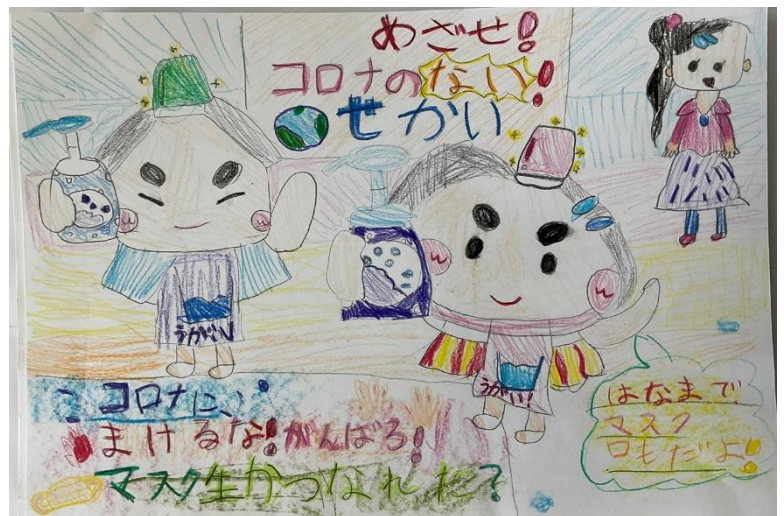 めざせ!
コロナのない!
せかい
うがい
うがい!
コロナに、
まけるな!がんばろ!
マスク生かつなれた?
はなまで
マスク
口もだよ!